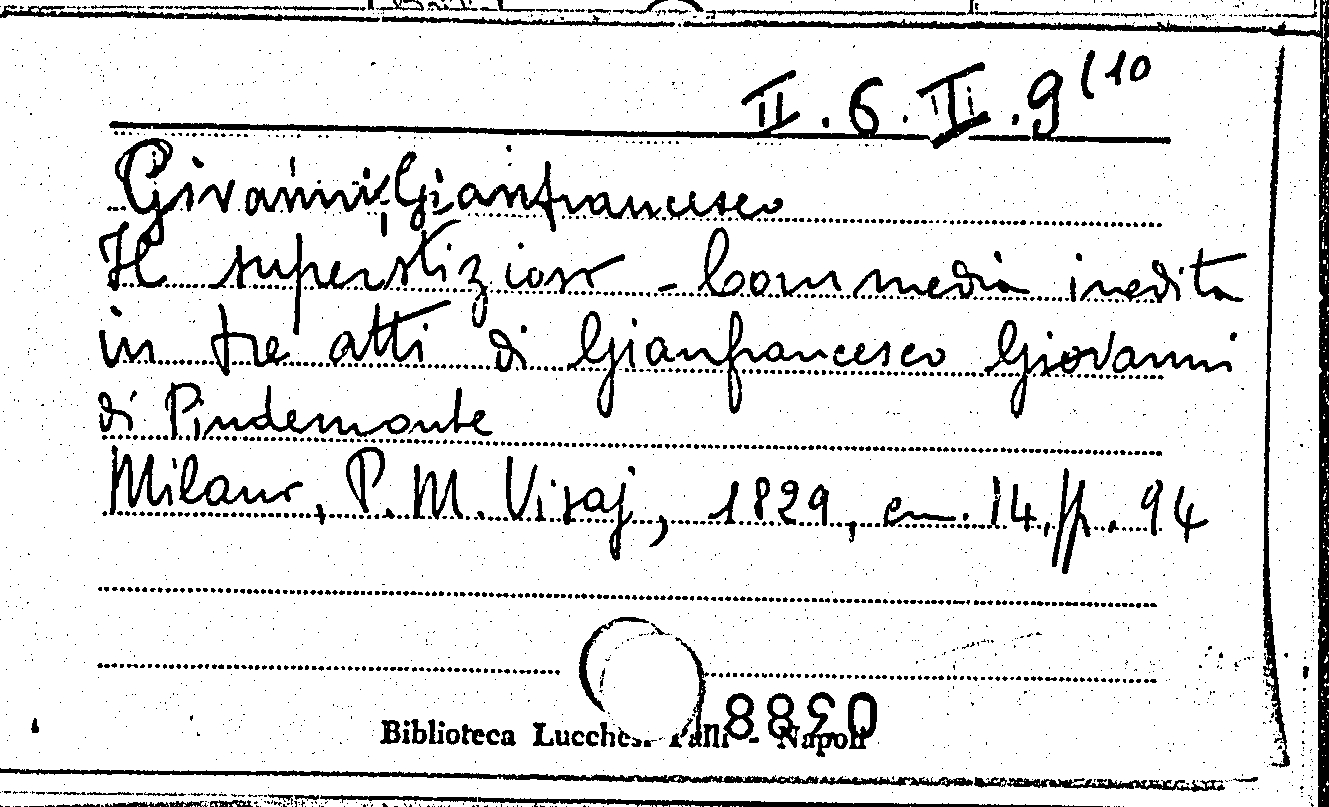 II. 6. II. 9 (10
Givanni, Gianfrancesco
Il superstizioso - Commedia inedita
in tre atti di Gianfrancesco Giovanni
di Pindemonte
Milano, P. M. Visaj, 1829, cm. 14, pp. 94
Biblioteca Lucchesi Palli - Napoli